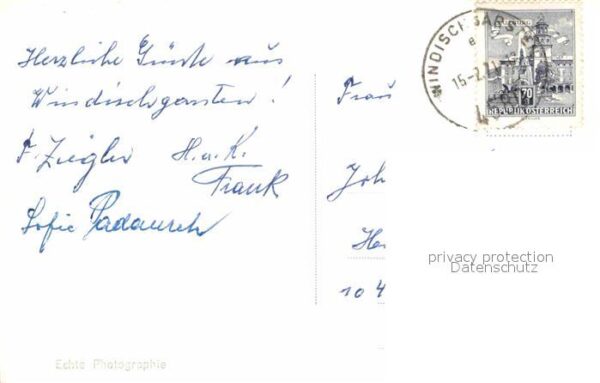 Herzliche Grüße aus
Windischgarsten!
F. Ziegler H. u. K.
Frank
Sofie
Frau
Joh
He
10 4
WINDISCHGARST
15.-2.
70
REPUBLIK ÖSTERREICH
privacy protection
Datenschutz
Echte Photographie